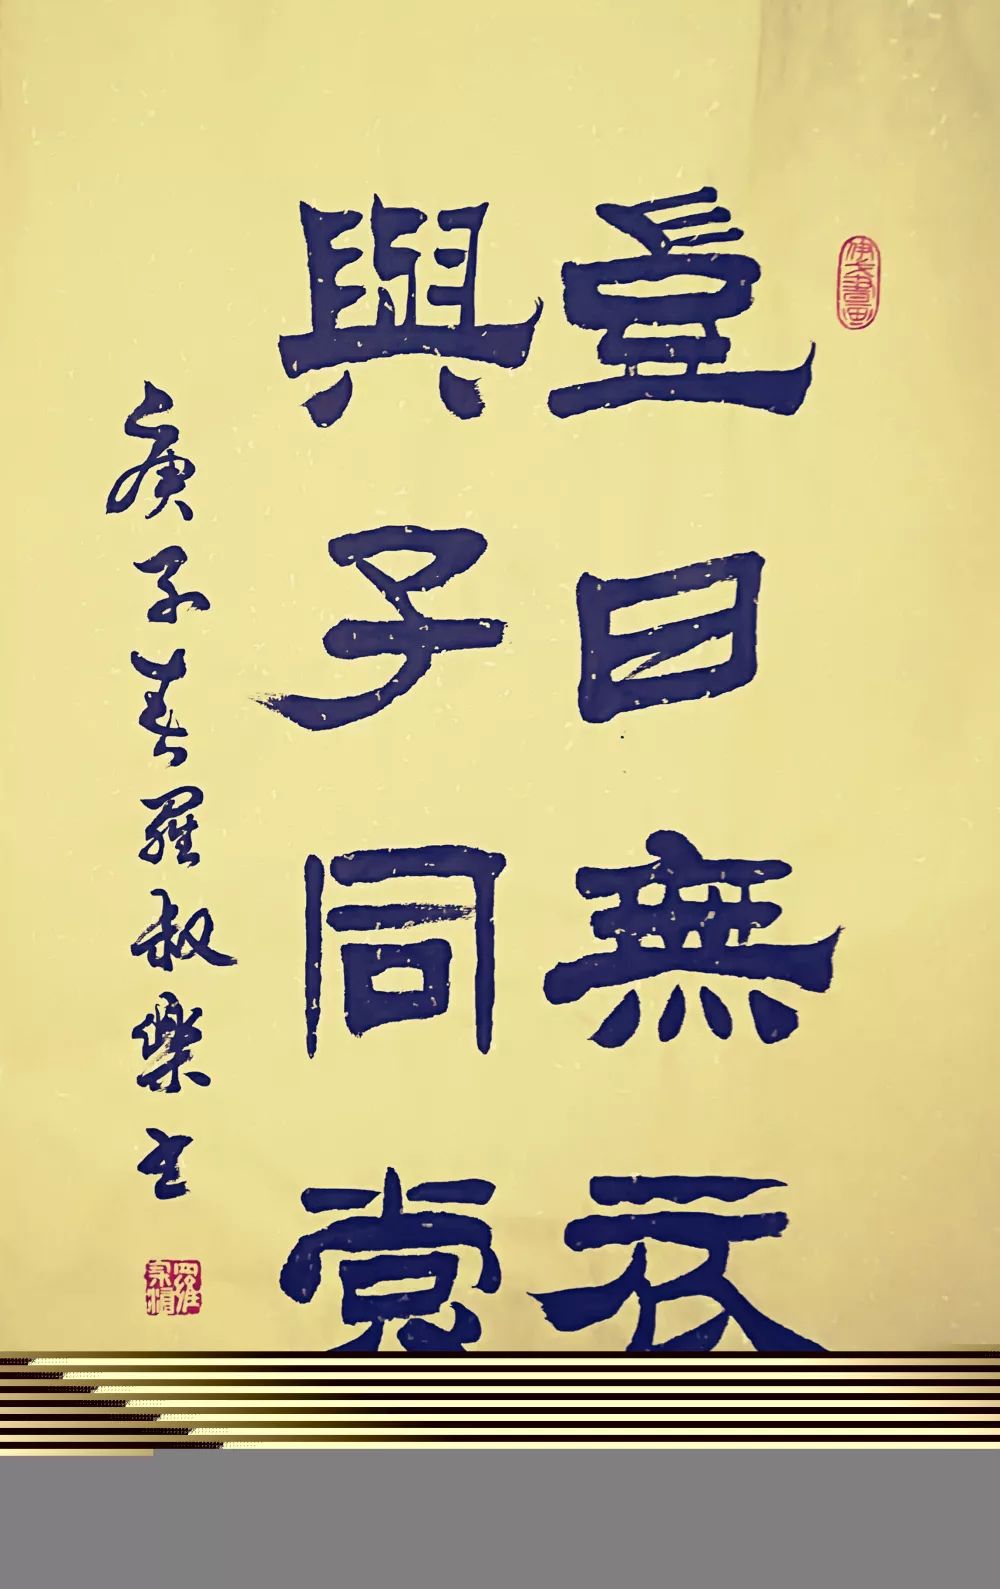 豈曰無衣
與子同裳
庚子春羅叔樂